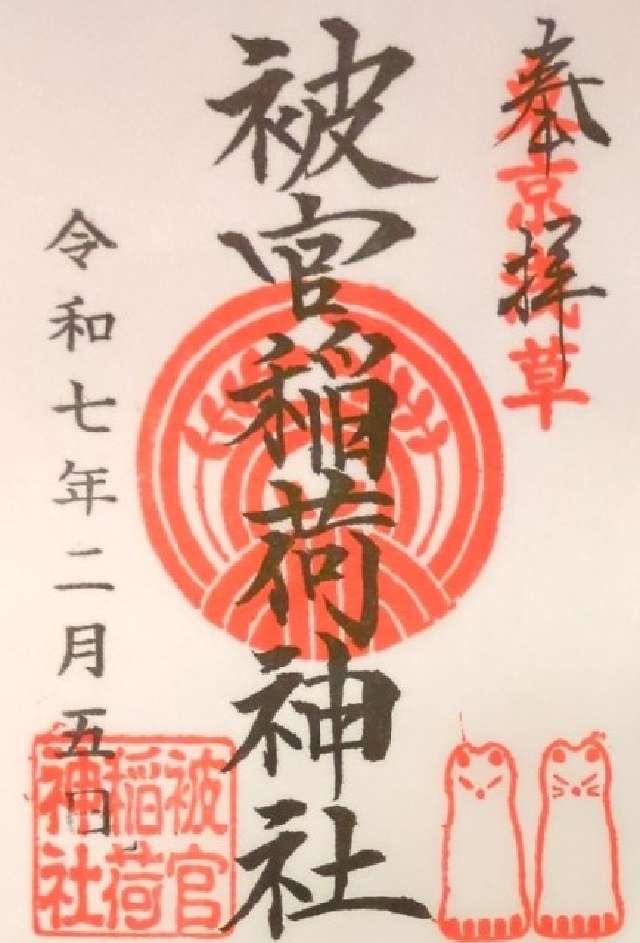 奉拝
東京浅草
被官稲荷神社
令和七年二月五日
被官
稲荷
神社